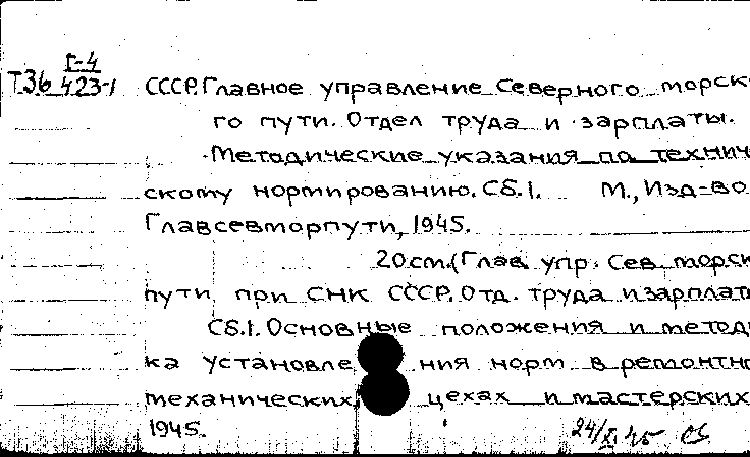 Г-4
Т36 423-1 СССР. Главное управление Северного морско
го пути. Отдел труда и зарплаты.
Методические указания по технич
скому нормированию. Сб. 1. М., Изд-во
Главсевморпути, 1945.
20 см. (Глав. упр. Сев. морск
пути при СНК СССР. Отд. труда и зарплат
Сб. 1. Основные положения и метод
ка установле ния норм в ремонтно
механических цехах и мастерских
1945.
24/XI 45